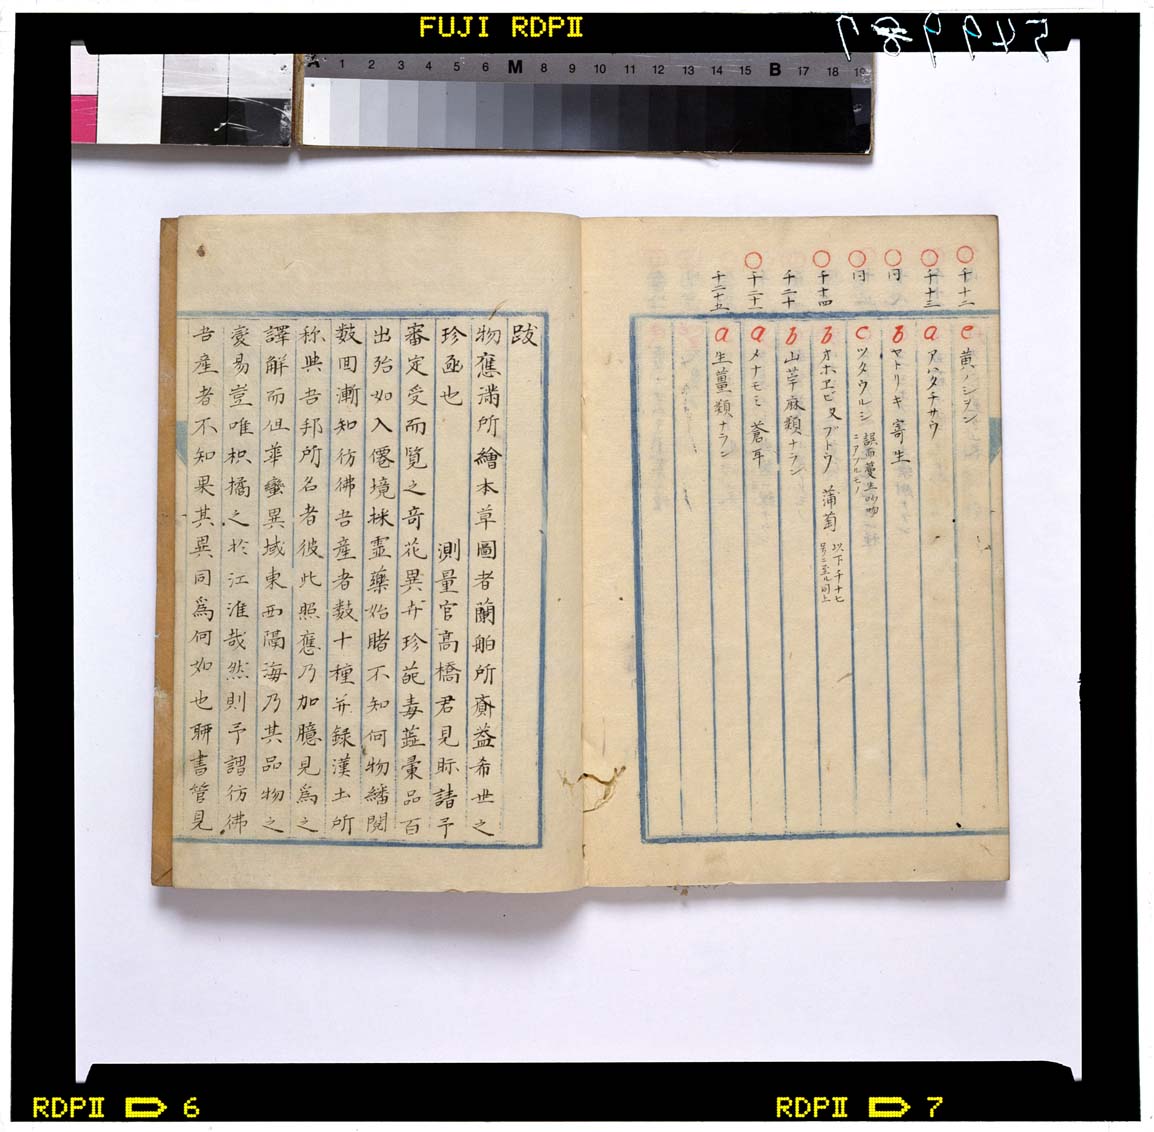 FUJI RDPII
549987
A 1 2 3 4 5 6 M 8 9 10 11 12 13 14 15 B 17 18 19
千十二
e 黄ノシヲン
千十三
a アハタチサウ
同
b ヤトリキ 寄生
同
c ツタウルシ
千十四
b オホヱビ又ブトウ 蒲萄 以下千十七
号ニ至ル同上
千二十
b 山苧麻類ナラン
千二十一
a メナモミ 蒼耳
千二十五
a 生薑類ナラン
跋
物應満所繪本草圖者蘭舶所齎葢希世之
珍亟也 測量官髙橋君見眎請予
審定受而覧之竒花異卉珍葩毒蕋彙品百
出殆如入僊境採靈藥始睹不知何物繙閲
數回漸知彷彿吾産者數十種并録漢土所
称與吾邦所名者彼此照應乃加臆見爲之
譯解而但華蠻異域東西隔海乃其品物之
變易豈唯枳橘之於江淮哉然則予謂彷彿
吾産者不知果其異同爲何如也聊書管見
RDPII 6
RDPII 7